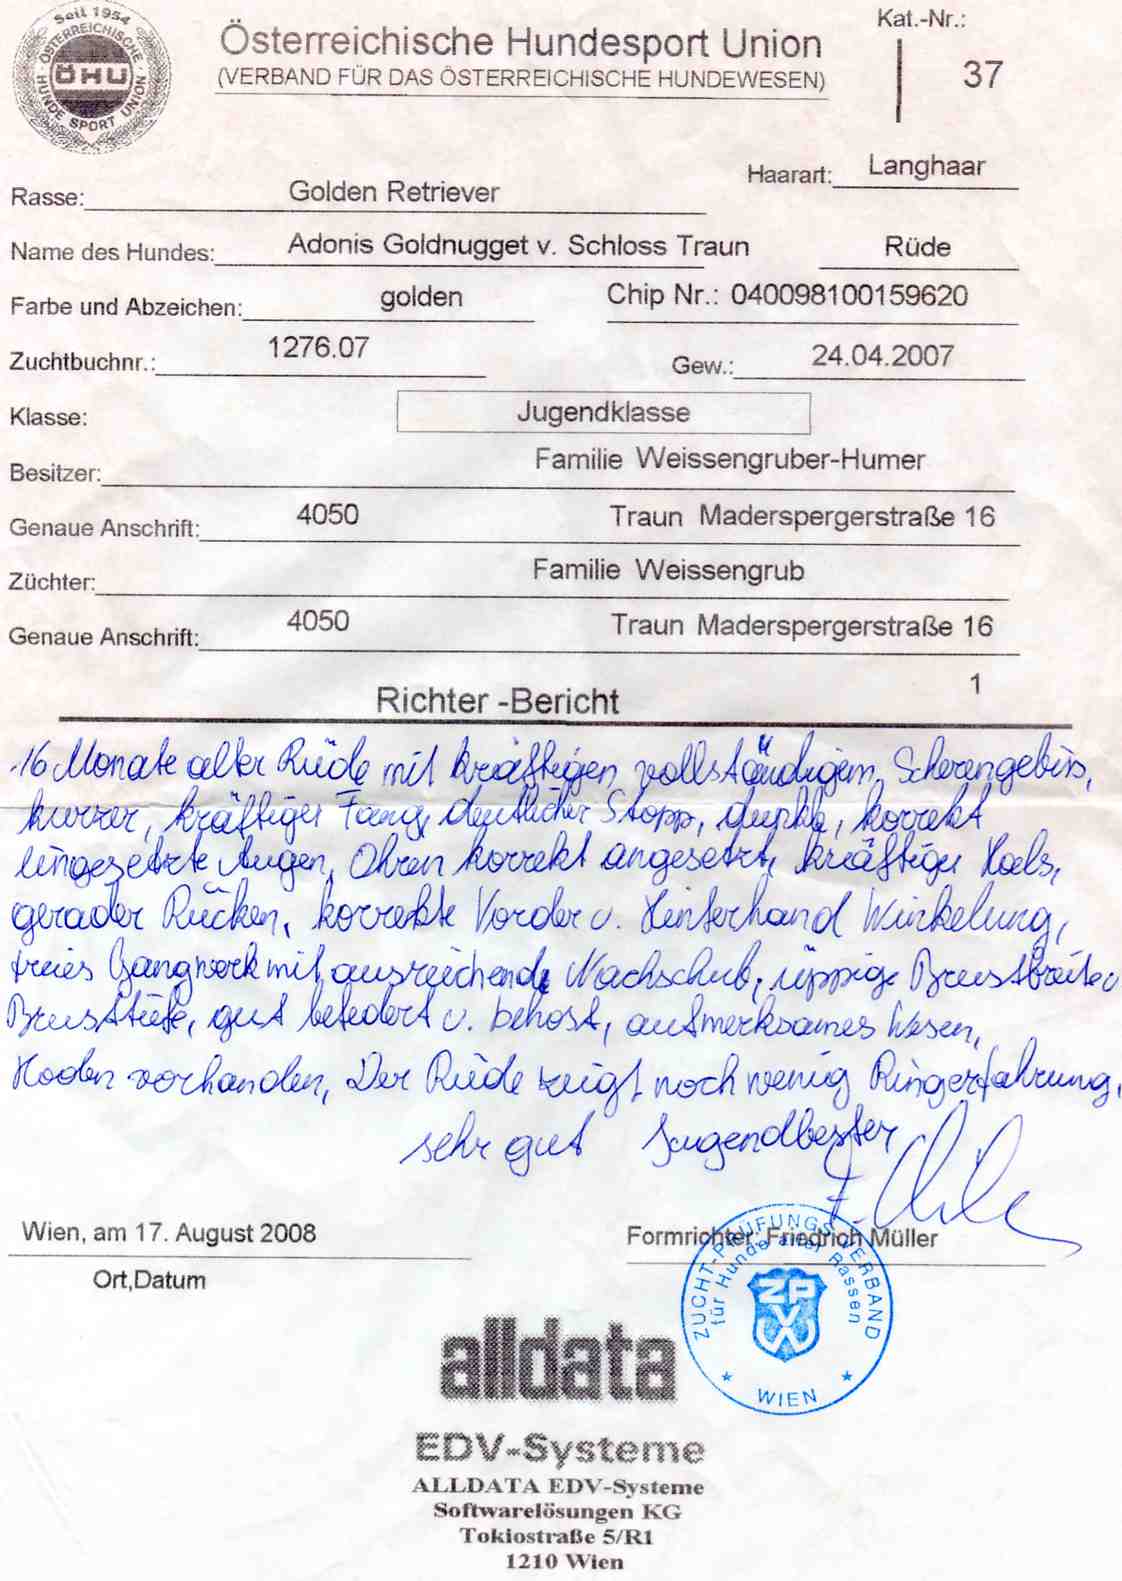 Seit 1954
ÖSTERREICHISCHE
ÖHU
HUNDE SPORT UNION
Österreichische Hundesport Union
(VERBAND FÜR DAS ÖSTERREICHISCHE HUNDEWESEN)
Kat.-Nr.:
37
Haarart: Langhaar
Rasse: Golden Retriever
Name des Hundes: Adonis Goldnugget v. Schloss Traun Rüde
Farbe und Abzeichen: golden Chip Nr.: 040098100159620
Zuchtbuchnr.: 1276.07 Gew.: 24.04.2007
Klasse: Jugendklasse
Besitzer: Familie Weissengruber-Humer
Genaue Anschrift: 4050 Traun Maderspergerstraße 16
Züchter: Familie Weissengrub
Genaue Anschrift: 4050 Traun Maderspergerstraße 16
Richter -Bericht 1
16 Monate alter Rüde mit kräftigen vollständigem, Scherengebiss,
kurzer, kräftiger Fang, deutlicher Stopp, dunkle, korrekt
eingesetzte Augen, Ohren korrekt angesetzt, kräftiger Hals,
gerader Rücken, korrekte Vorder u. Hinterhand Winkelung,
freies Gangwerk mit ausreichende Nachschub, üppige Brustbreite u
Brusttiefe, gut befedert u. behost, aufmerksames Wesen,
Hoden vorhanden, Der Rüde zeigt noch wenig Ringerfahrung,
sehr gut Jugendbester
Wien, am 17. August 2008
Formrichter: Friedrich Müller
Ort,Datum
ZUCHT-PRÜFUNGS-VERBAND
für Hunde aller Rassen
ZPVW
WIEN
alldata
EDV-Systeme
ALLDATA EDV-Systeme
Softwarelösungen KG
Tokiostraße 5/R1
1210 Wien